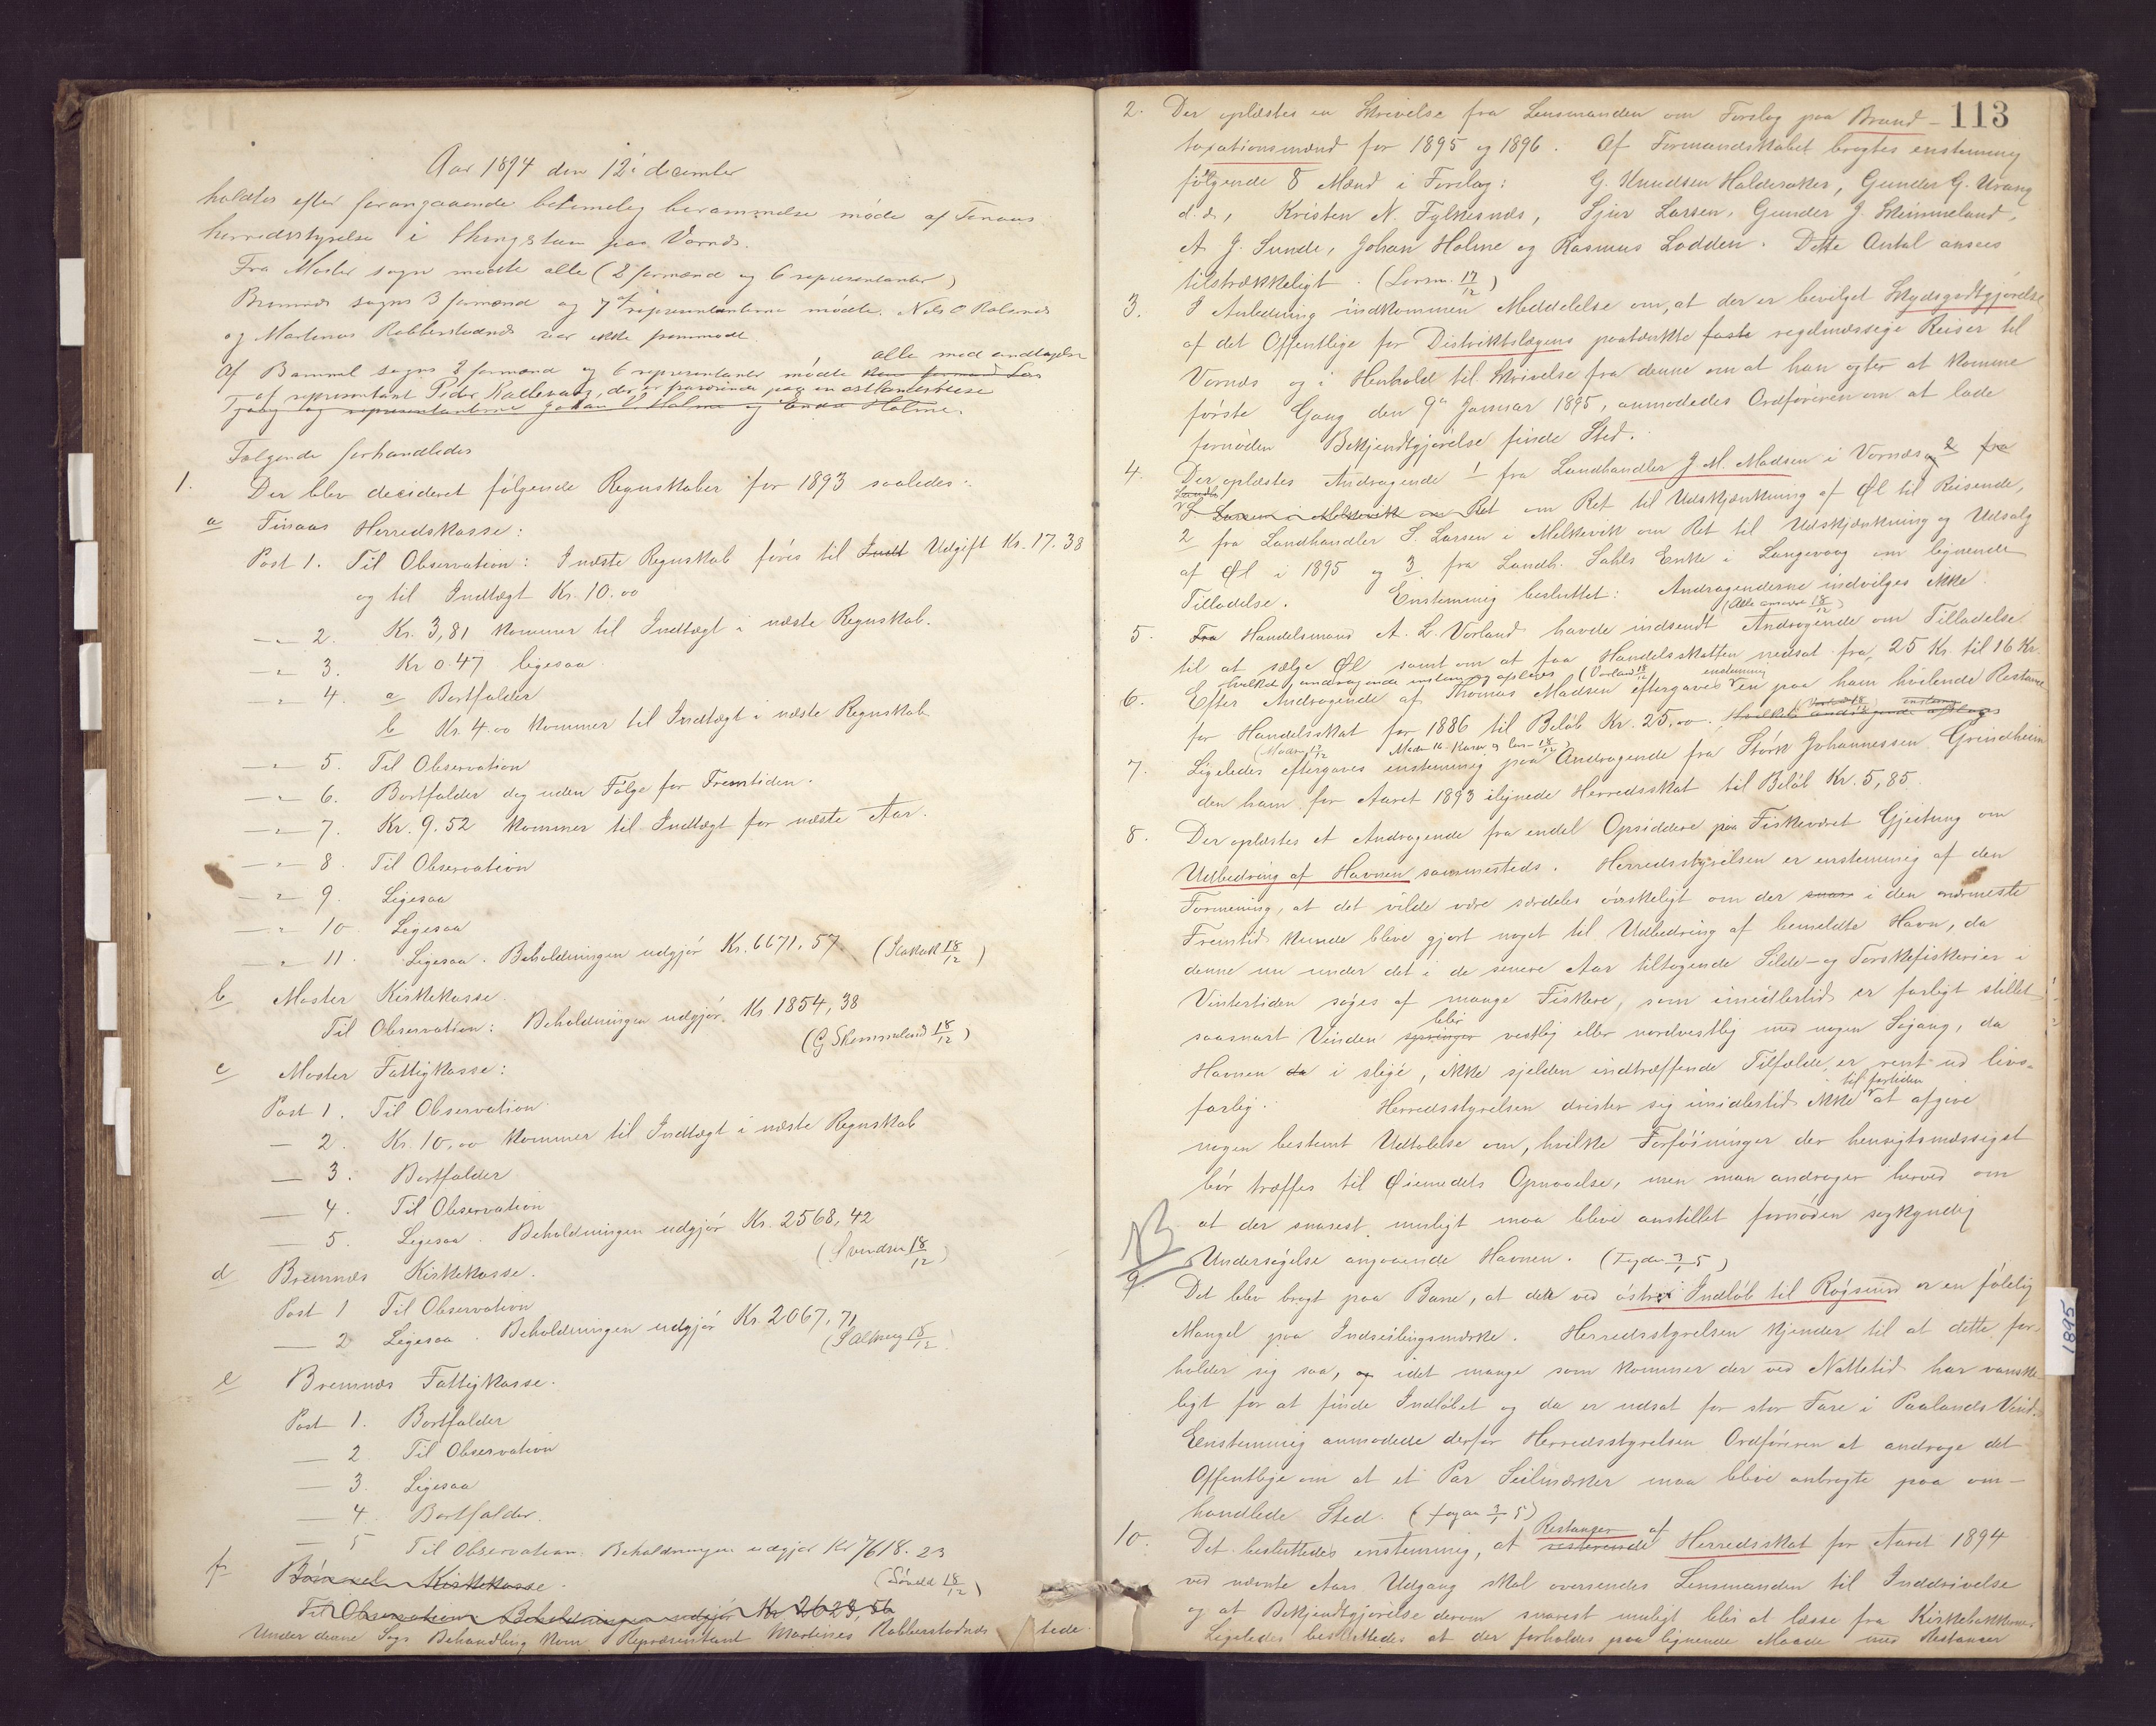 Aar 1894 den 12' december
holdtes efter forangaaende betimelig berammelse møde af Finaas
herredsstyrelse i thingstuen paa Vornæs.
Fra Moster sogn mødte alle (2 formænd og 6 representanter)
Bremnæs sogns 3 formænd og 7 af representanterne mødte. Nils O Rolsnæs
og Martinus Robberstadnæs var ikke fremmødt.
alle med undtagelse
Af Bømmel sogns 2 formænd og 6 representanter mødte
af representant Peder Kallevaag, der er fraværende paa en østlandsreise
representanterne Johan Holme og Endre Holme.
Følgende forhandledes
1. Der blev decideret følgende Regnskaber for 1893 saaledes:
a Finaas Herredskasse:
Post 1. Til Observation: I næste Regnskab føres til Indt Udgift Kr. 17.38
og til Indtægt Kr. 10.00
—"— 2. Kr. 3,81 kommer til Indtægt i næste Regnskab.
—"— 3. Kr 0.47 ligesaa
—"— 4. a Bortfalder
b Kr. 4.00 kommer til Indtægt i næste Regnskab
—"— 5. Til Observation
—"— 6. Bortfalder dog uden Følge for Fremtiden.
—"— 7. Kr. 9.52 kommer til Indtægt for næste Aar.
—"— 8. Til Observation
—"— 9. Ligesaa
—"— 10 Ligesaa
—"— 11. Ligesaa. Beholdningen udgjør Kr. 6671,57 18/12)
b Moster Kirkekasse
Til Observation: Beholdningen udgjør Kr 1854,38
(G Skimmeland 18/12)
c Moster Fattigkasse:
Post 1. Til Observation
— 2. Kr. 10,00 kommer til Indtægt i næste Regnskab
— 3. Bortfalder
— 4. Til Observation
— 5. Ligesaa. Beholdningen udgjør Kr. 2568,42
(Svendsen 18/12)
d Bremnæs Kirkekasse.
Post 1 Til Observation
— 2 Ligesaa. Beholdningen udgjør Kr. 2067,71
18/12)
e Bremnæs Fattigkasse.
Post 1. Bortfalder
— 2 Til Observation
— 3. Ligesaa
— 4. Bortfalder.
— 5 Til Observation. Beholdningen udgjør Kr 7618.23
18/12)
f Bømmel Kirkekasse.
Til Observation Beholdningen udgjør Kr. 2628,56
Under denne Sags Behandling kom Repræsentant Martinus Robberstadnæs tilstede.
113
2. Der oplæstes en Skrivelse fra Lensmanden om Forslag paa Brand-
taxationsmænd for 1895 og 1896. Af Formandskabet bragtes enstemmig
følgende 8 Mænd i Forslag: G. Knudsen Halderaker, Gunder G. Urang
d. æ, Kristen N. Fylkesnæs, Sjur Larsen, Gunder J. Skimmeland,
A. J. Sunde, Johan Holme og Rasmus Lodden. Dette Antal ansees
tilstrækkeligt. (Lensm. 17/12)
3. I Anledning indkommen Meddelelse om, at der er bevilget Skydsgodtgjørelse
af det Offentlige for Distriktslægens paatænkte faste regelmæssige Reiser til
Vornæs og i Henhold til Skrivelse fra denne om at han agter at komme
første Gang den 9de Januar 1895, anmodedes Ordføreren om at lade
fornøden Bekjendtgjørelse finde Sted.
4. Der oplæstes Andragende 1 fra Landhandler J. M. Madsen i Vornæs og 2 fra
Landh.
S Larsen i Melkevik om Ret om Ret til Udskjænkning af Øl til Reisende,
2 fra Landhandler S. Larsen i Melkevik om Ret til Udskjænkning og Udsalg
af Øl i 1895 og 3 fra Landh. Sahls Enke i Langevaag om lignende
Tilladelse. Enstemmig besluttet: Andragenderne indvilges ikke.
(Alle 18/12)
5. Fra Handelsmand A. L. Vorland havde indsendt Andragende om Tilladelse
til at sælge Øl samt om at faa Handelsskatten nedsat fra 25 Kr. til 16 Kr.
hvilket andragende enstemmig afsloges (Vorland 18/12)
6. Efter Andragende af Thomas Madsen eftergaves enstemmig en paa ham hvilende Restance
for Handelsskat for 1886 til Beløb Kr. 25,00. Hvilket andragende afsloges
7. Ligeledes eftergaves enstemmig paa Andragende fra Størk Johannessen Grindheim
den ham for Aaret 1893 ilignede Herredsskat til Beløb Kr. 5,85.
8. Der oplæstes et Andragende fra endel Opsiddere paa Fiskeværet Gjeitung om
Udbedring af Havnen sammesteds. Herredsstyrelsen er enstemmig af den
Formening, at det vilde være særdeles ønskeligt om der snar i den nærmeste
Fremtid kunde blive gjort noget til Udbedring af bemeldte Havn, da
denne nu under det i de senere Aar tiltagende Silde- og Torskefiskerier i
Vintertiden søges af mange Fiskere, som imidlertid er farligt stillet
saasnart Vinden springer blir vestlig eller nordvestlig med nogen Søgang, da
Havnen da i slige, ikke sjelden indtræffende Tilfælde, er rent ud livs-
farlig. Herredsstyrelsen drister sig imidlertid ikke til fortiden at afgive
nogen bestemt Udtalelse om, hvilke Forføininger der hensigtsmæssigst
bør træffes til Øiemedets Opnaaelse, men man andrager herved om
at der snarest muligt maa blive anstillet fornøden sagkyndig
Undersøgelse angaaende Havnen.
NB
9. Det blev bragt paa Bane, at der ved østre Indløb til Røgsund er en følelig
Mangel paa Indseilingsmærke. Herredsstyrelsen kjender til at dette for-
holder sig saa, og idet mange som kommer der ved Nattetid har vanske-
ligt for at finde Indløbet og da er udsat for stor Fare i Paalands Vind.
Enstemmig anmodede derfor Herredsstyrelsen Ordføreren at andrage det
Offentlige om at et Par Seilmærker maa blive anbragte paa om-
handlede Sted.
10. Det besluttedes enstemmig, at resterende Restancer af Herredsskat for Aaret 1894
ved nævnte Aars Udgang skal oversendes Lensmanden til Inddrivelse
og at Bekjendtgjørelse derom snarest muligt blir at læse fra Kirkebakkerne.
Ligeledes besluttedes at der forholdes paa lignende Maade med Restancer
1895